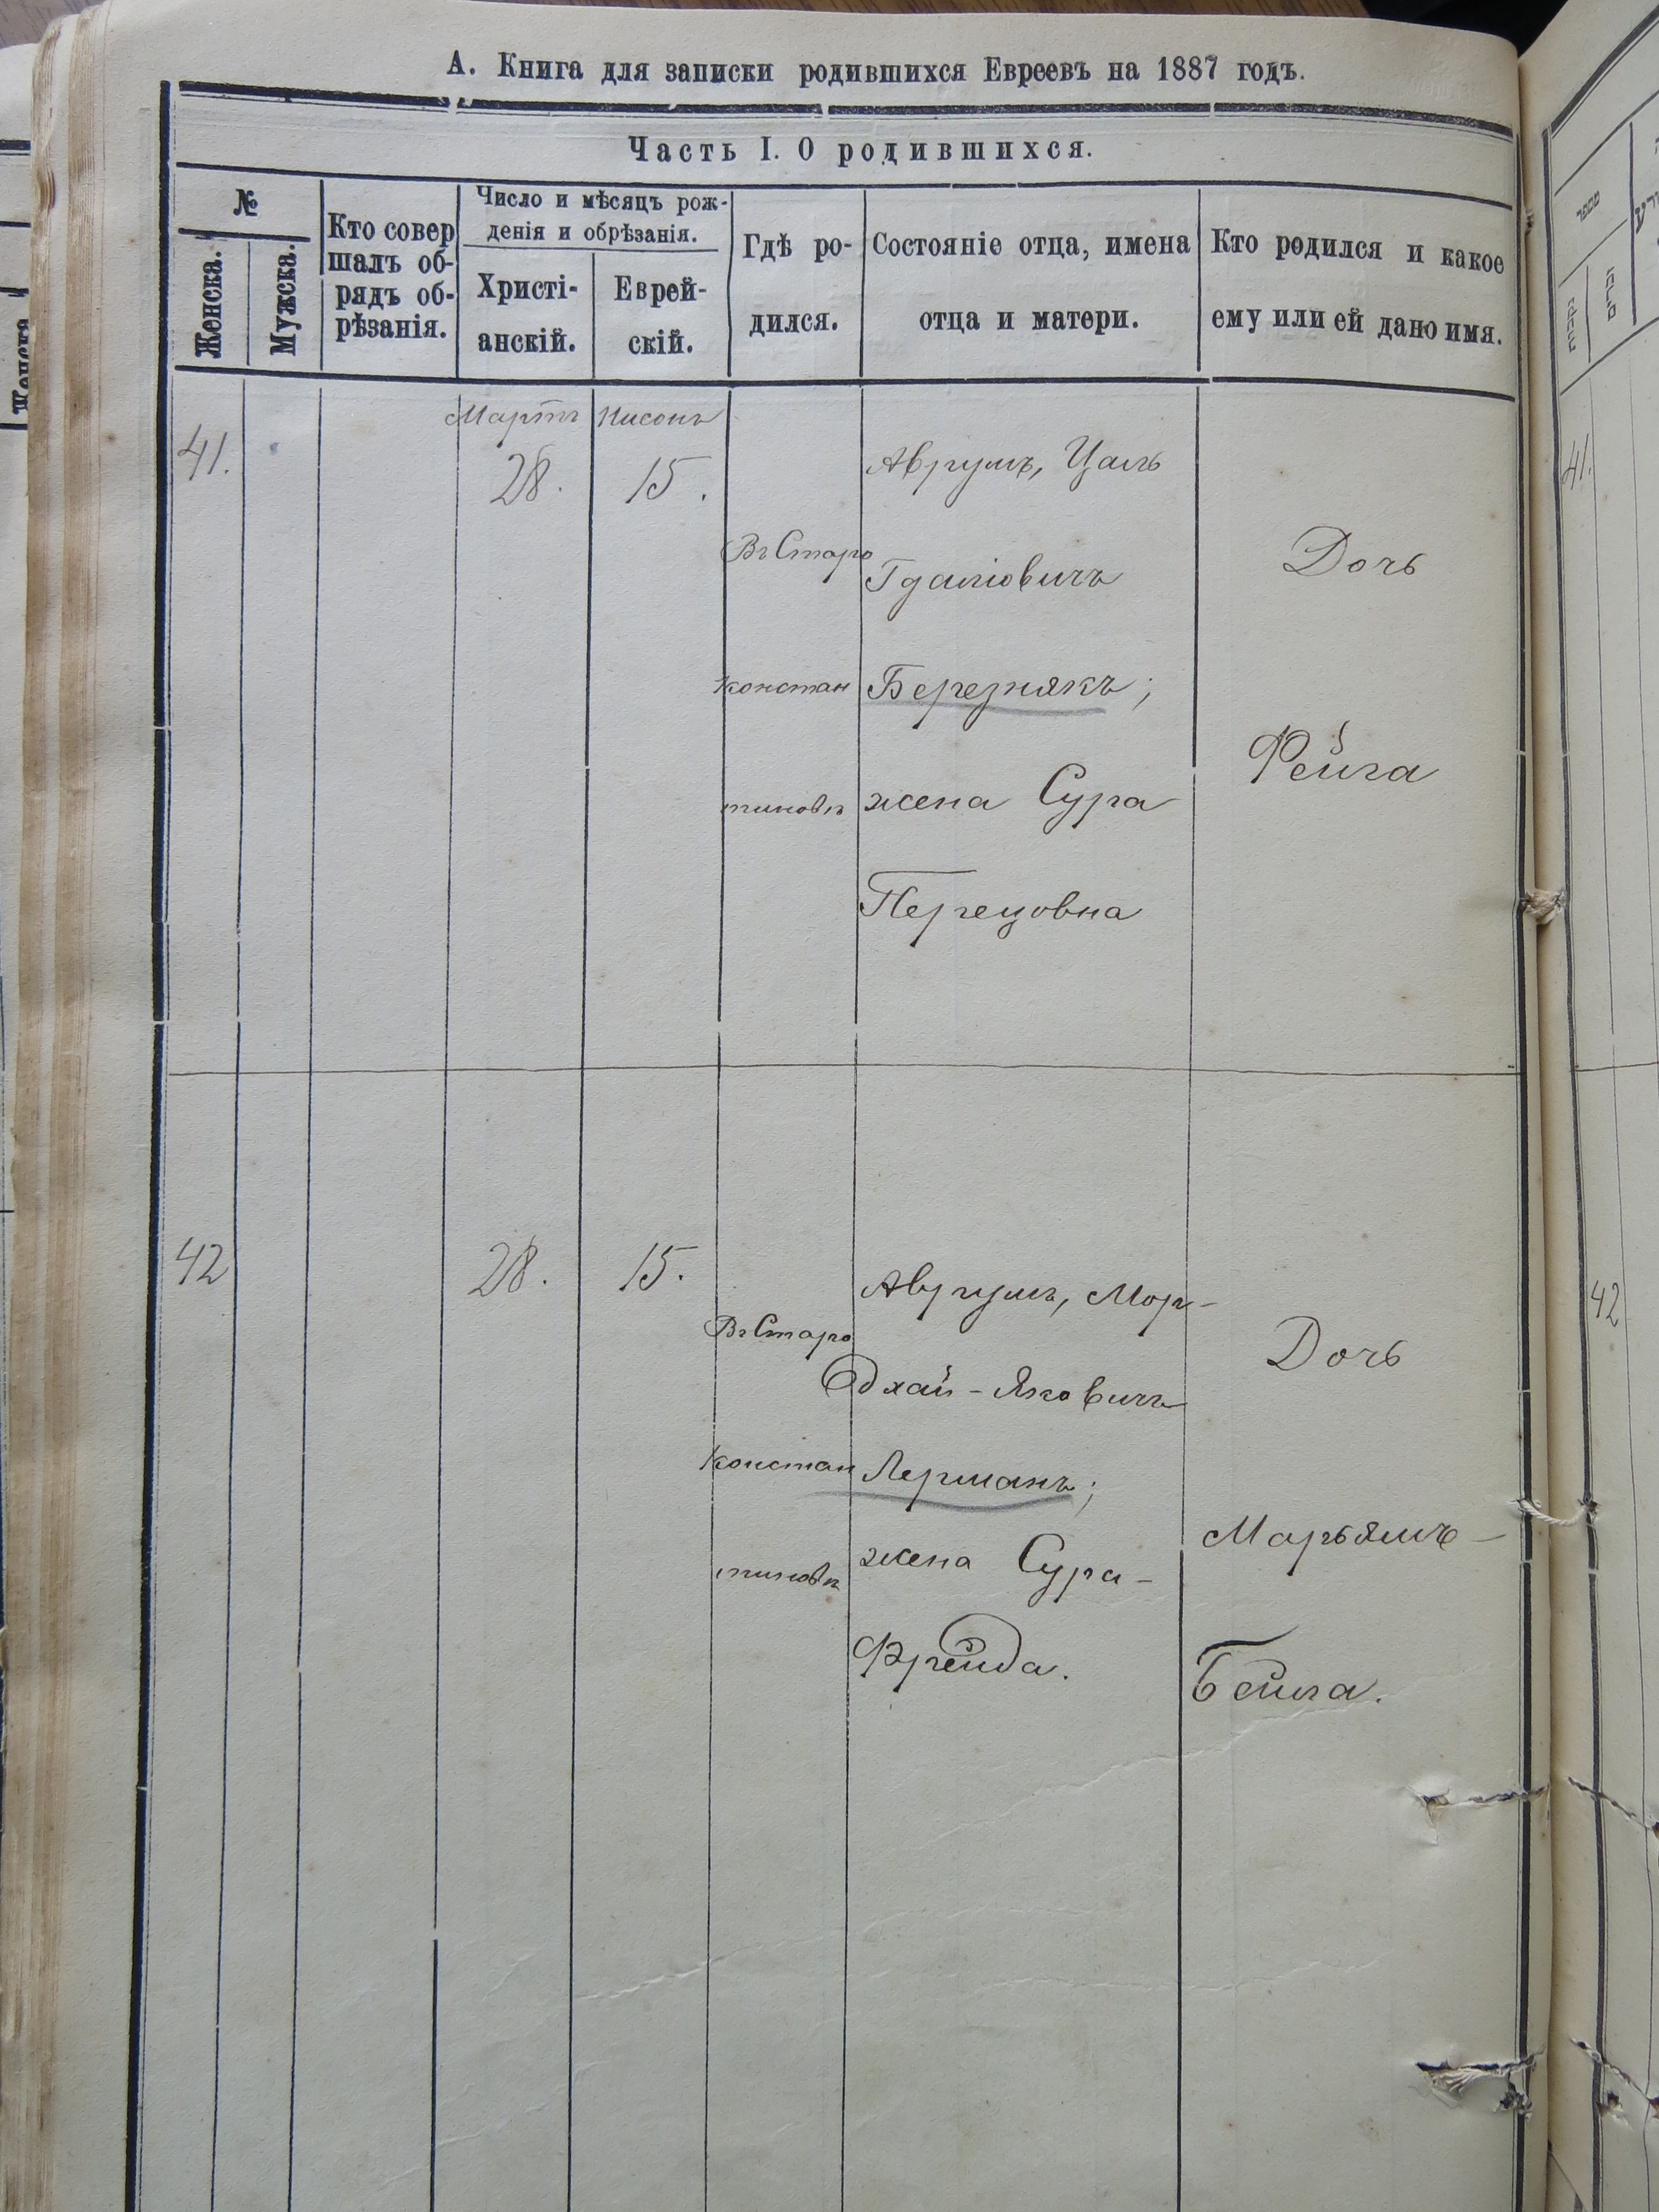 А. Книга для записки родившихся Евреевъ на 1887 годъ.
Часть I. О родившихся.
№
Женска.
Мужска.
Кто совер
шалъ об-
рядъ об-
рѣзанія.
Число и мѣсяцъ рож-
денія и обрѣзанія.
Христі-
анскій.
Еврей-
скій.
Гдѣ ро-
дился.
Состояніе отца, имена
отца и матери.
Кто родился и какое
ему или ей дано имя.
Мартъ Нисонъ
41. 28. 15.
Въ Старо
констан
тиновѣ
Аврумъ, Цаль
Гдаліовичъ
Березнякъ;
жена Сура
Перецовна
Дочь
Фейга
42 28. 15.
Въ Старо
констан
тиновѣ
Аврумъ, Мор-
дхай-Яковичъ
Лерманъ;
жена Сура-
Фрейда.
Дочь
Марьямъ-
Бейла.
41.
42